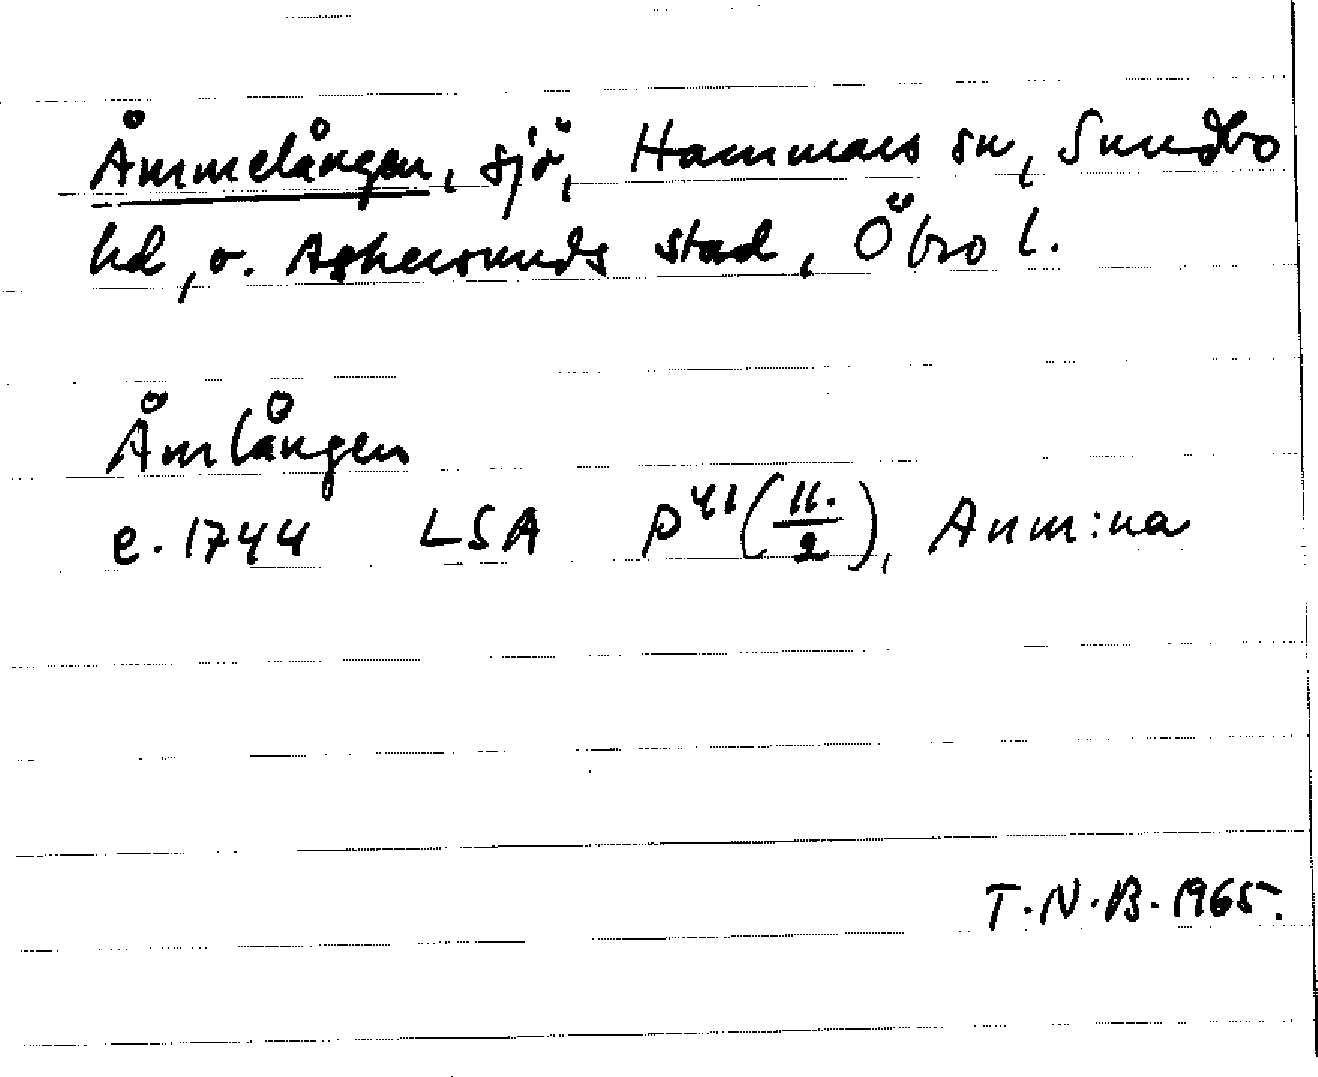 Åmmelången, sjö, Hammars sn, Sundbo
hd, o. Askersunds stad, Öbro l.
Åmlången
e. 1744 LSA P 41 (11./2), Anm:na
T.N.B. 1965.